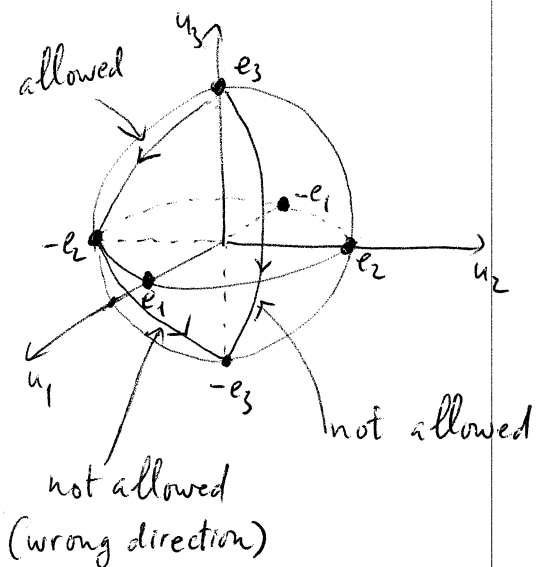 u₃
e₃
allowed
-e₁
-e₂
e₂
u₂
e₁
u₁
-e₃
not allowed
not allowed
(wrong direction)